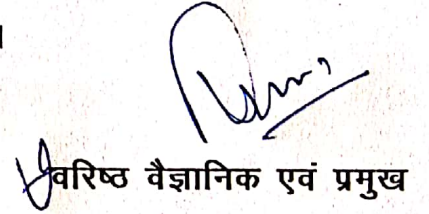 वरिष्ठ वैज्ञानिक एवं प्रमुख